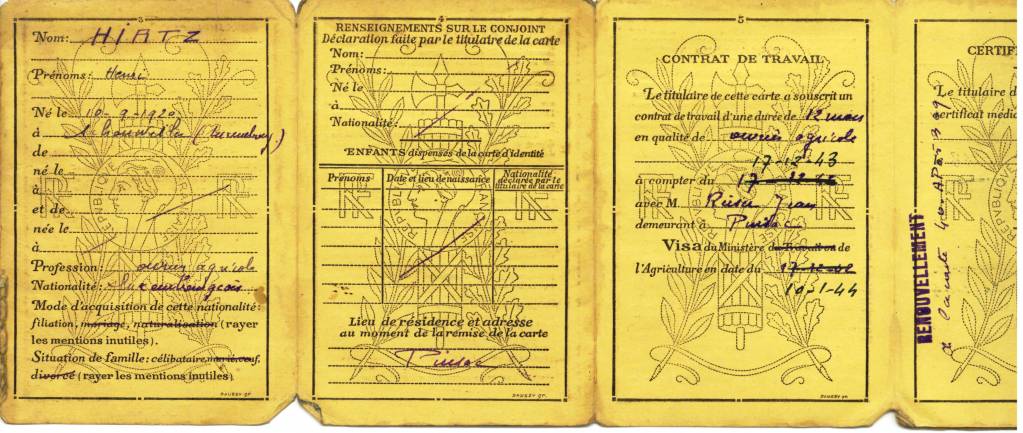 3
Nom: HIATZ
Prénoms: Henri
Né le 10-9-1920
à
de
né le
à
et de
née le
à
Profession: ouvrier agricole
Nationalité: Luxembourgeois
Mode d'acquisition de cette nationalité:
filiation, mariage, naturalisation (rayer
les mentions inutiles).
Situation de famille: célibataire, marié, veuf,
divorcé (rayer les mentions inutiles)
DAUSSY gr.
4
RENSEIGNEMENTS SUR LE CONJOINT
Déclaration faite par le titulaire de la carte
Nom:
Prénoms:
Né le
à
Nationalité:
ENFANTS dispensés de la carte d'identité
Prénoms Date et lieu de naissance Nationalité
déclarée par le
titulaire de la carte
RF RÉPUBLIQUE FRANÇAISE RF
Lieu de résidence et adresse
au moment de la remise de la carte
Pinsac
DAUSSY gr.
5
CONTRAT DE TRAVAIL
Le titulaire de cette carte a souscrit un
contrat de travail d'une durée de 12 mois
en qualité de ouvrier agricole
17-12-43
à compter du 17-12-42
avec M. Jean
demeurant à Pinsac
Visa du Ministère du Travail ou de
l'Agriculture en date du 17-12-42
10-1-44
DAUSSY gr.
CERTIF
Le titulaire d
certificat médic
RENOUVELLEMENT